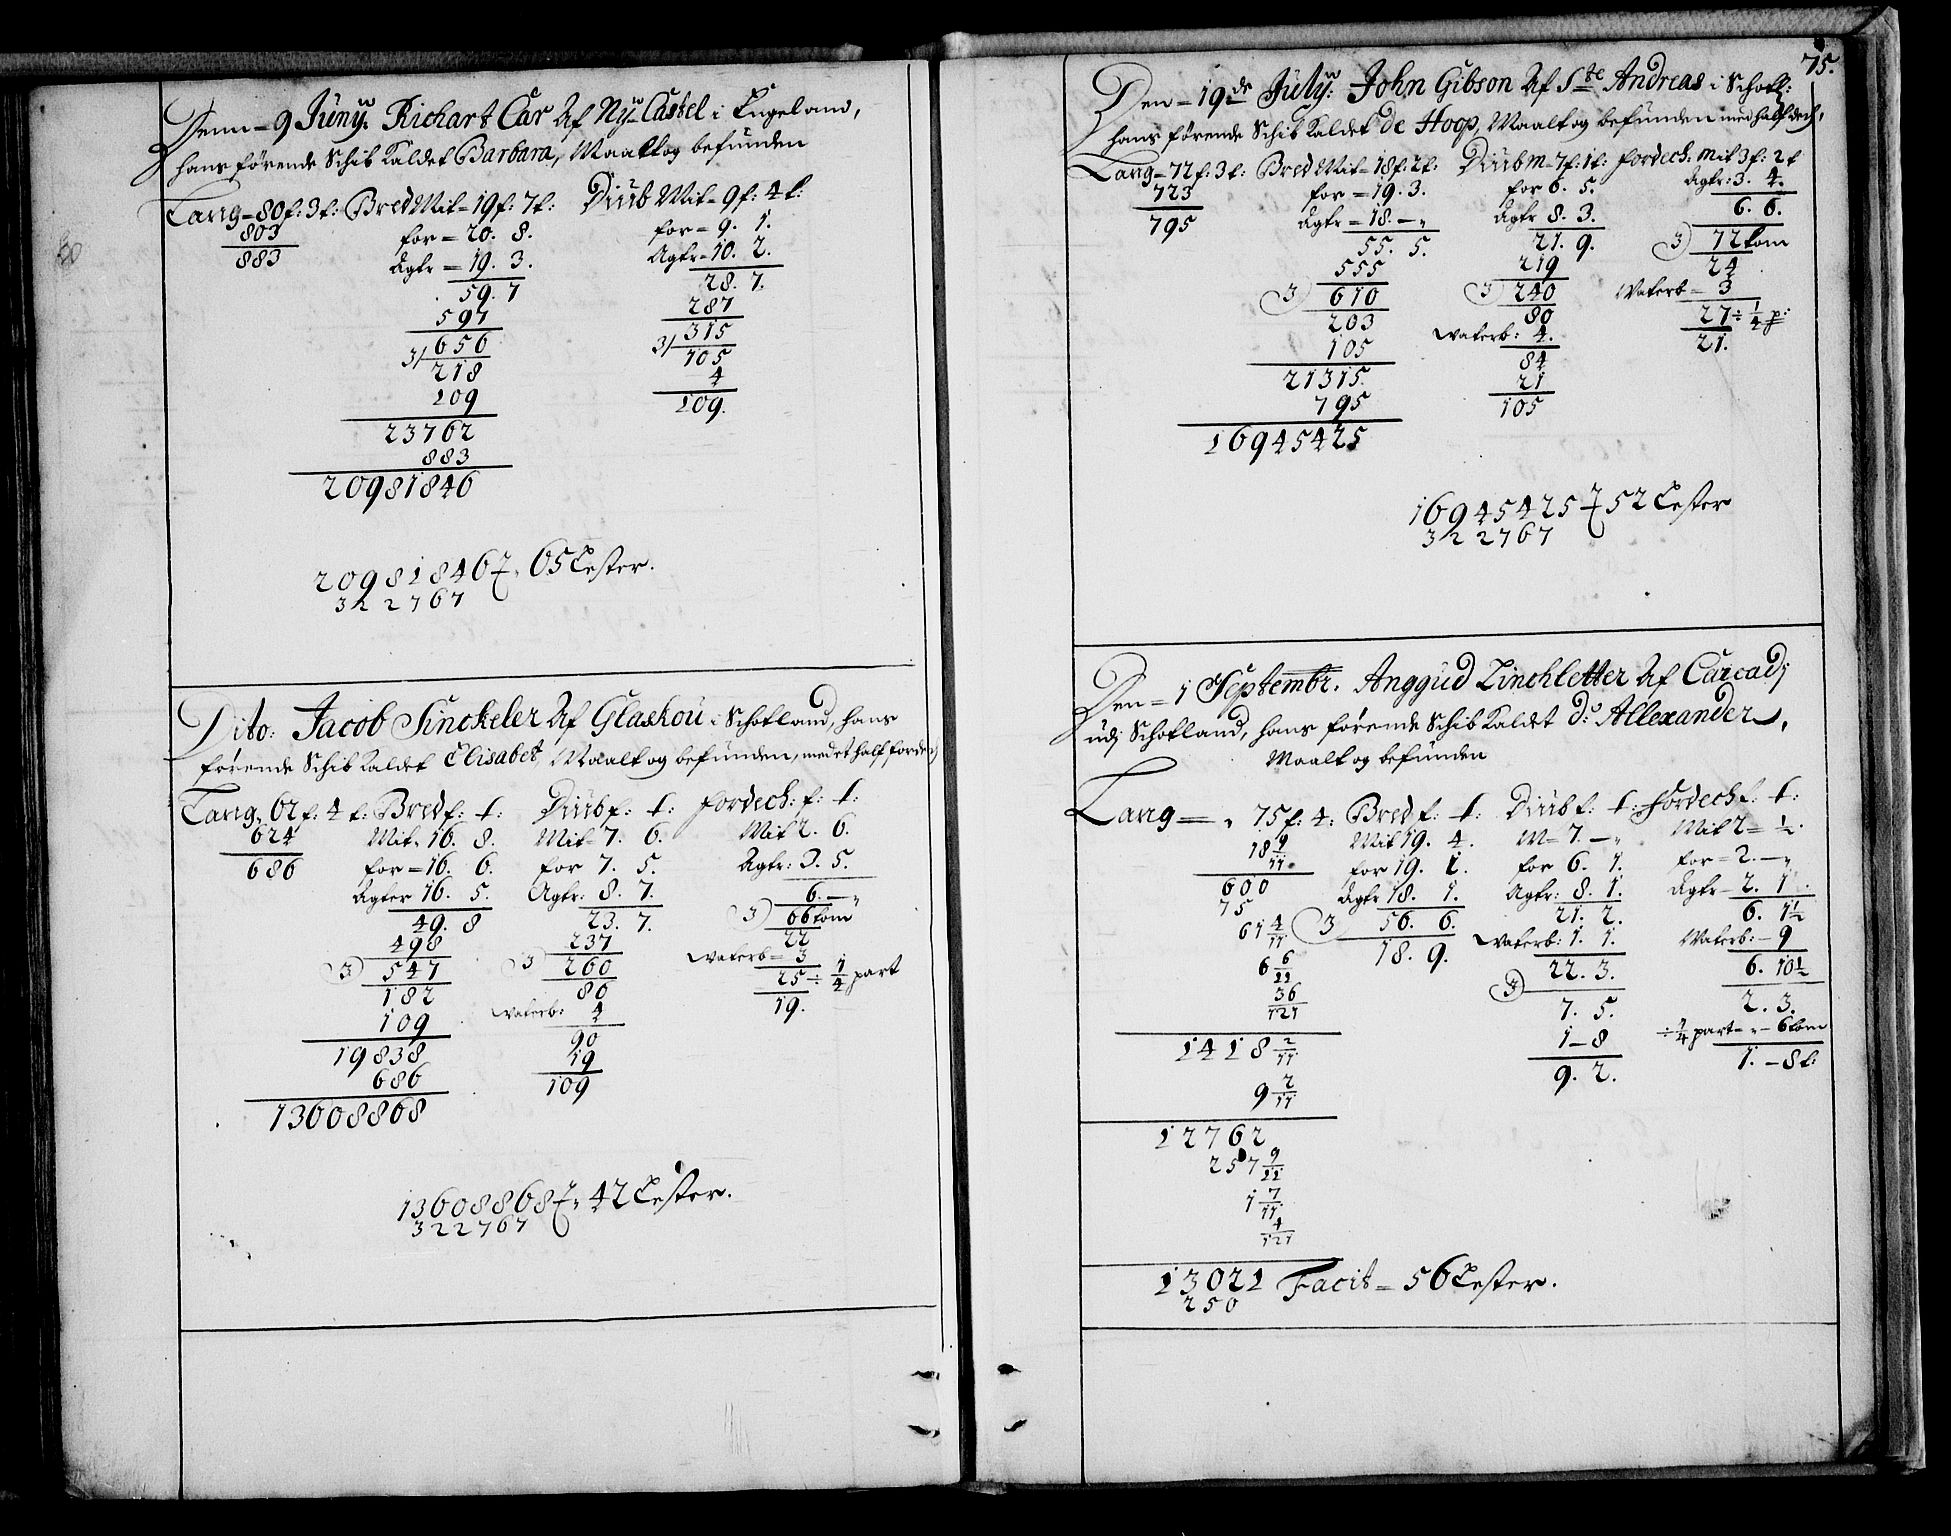 Denn = 9 Juny. Richart Car Af Ny Castel i Engeland,
hans førende Schib kaldet Barbara, Maalt og befunden
Lang = 80 f: 3 t: Bred Mit = 19 f: 7 t: Diüb Mit = 9 f: 4 t:
803 for = 20. 8. for = 9. 1.
883 Agtr = 19. 3. Agtr = 10. 2.
59. 7 28. 7.
597 287
3) 656 3) 315
218 105
109 4
23762 109.
883
20981846
20981846 } 65 Lester.
322767
Dito: Jacob Sinckeler Af Glaskou i Schotland, hans
førende Schib kaldet Elisabet, Maalt og befunden, med et half fordech
Lang. 62 f: 4 t: Bred f: t: Diüb f: t: fordech: f: t:
624 Mit. 16. 8. Mit = 7. 6. Mit 2. 6.
686 for = 16. 6. for 7. 5. Agtr: 3. 5.
Agter 16. 5. Agtr: 8. 7. 6. —
49. 8 23. 7. 3) 66 tom
498 237 22
3) 547 3) 260 waterb = 3
182 86 25 ÷ 1/4 part
109 waterb: 4 19.
19838 90
686 19
13608868 109
13608868 } 42 Lester.
322767
75.
Den = 19de July. John Gibson Af Ste Andreas i Schotl:
hans førende Schib kaldet de Hoop, Maalt og befunden med half dech,
Lang = 72 f: 3 t: Bred Mit = 18 f: 2 t: Diüb M = 7 f: 1 t: fordech: Mit 3 f: 2 t
723 for = 19. 3. for 6. 5. Agtr: 3. 4.
795 Agtr = 18. — Agtr 8. 3. 6. 6.
55. 5. 21. 9. 3) 72 tom
555 219 24
3) 610 3) 240 Waterb = 3
203 80 27 ÷ 1/4 p:
105 waterb: 4. 21.
21315. 84
795 21
16945425 105
16945425 } 52 Lester
322767
Den = 1 Septembr. Anggud Linchletter Af Carcadj
udj Schotland, hans førende Schib kaldet d: Allexander,
Maalt og befunden
Lang = 75 f: 4: Bred f: t: Diüb f: t: fordech f: t:
18 9/11 Mit 19. 4. M = 7. — Mit 2 = 1/2.
600 for 19. 1. for 6. 1. for = 2. —
75 Agtr 18. 1. Agtr: 8. 1. Agtr = 2. 1.
61 4/11 3) 56. 6. 21. 2. 6. 1 1/2
6 6/11 18. 9. waterb: 1. 1. Waterb: — 9
36/121 22. 3. 6. 10 1/2
3) 7. 5. 2. 3.
1418 2/11 1 — 8 ÷ 1/4 part = — 6 tom
9 2/11 9. 2. 1. — 8 t:
12762
257 9/11
1 7/11
4/121
13021 Facit = 56 Lester.
250